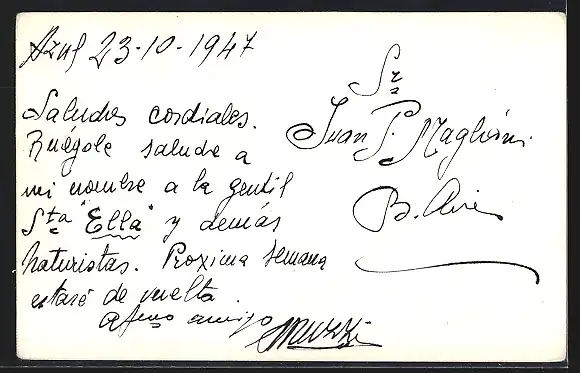 Azul 23-10-1947
Saludos cordiales.
Ruégole salude a
mi nombre a la gentil
Sta "Ella" y demás
naturistas. Proxima semana
estaré de vuelta.
afmo amigo
Sr
Juan P. Maglioni.
B. Aires